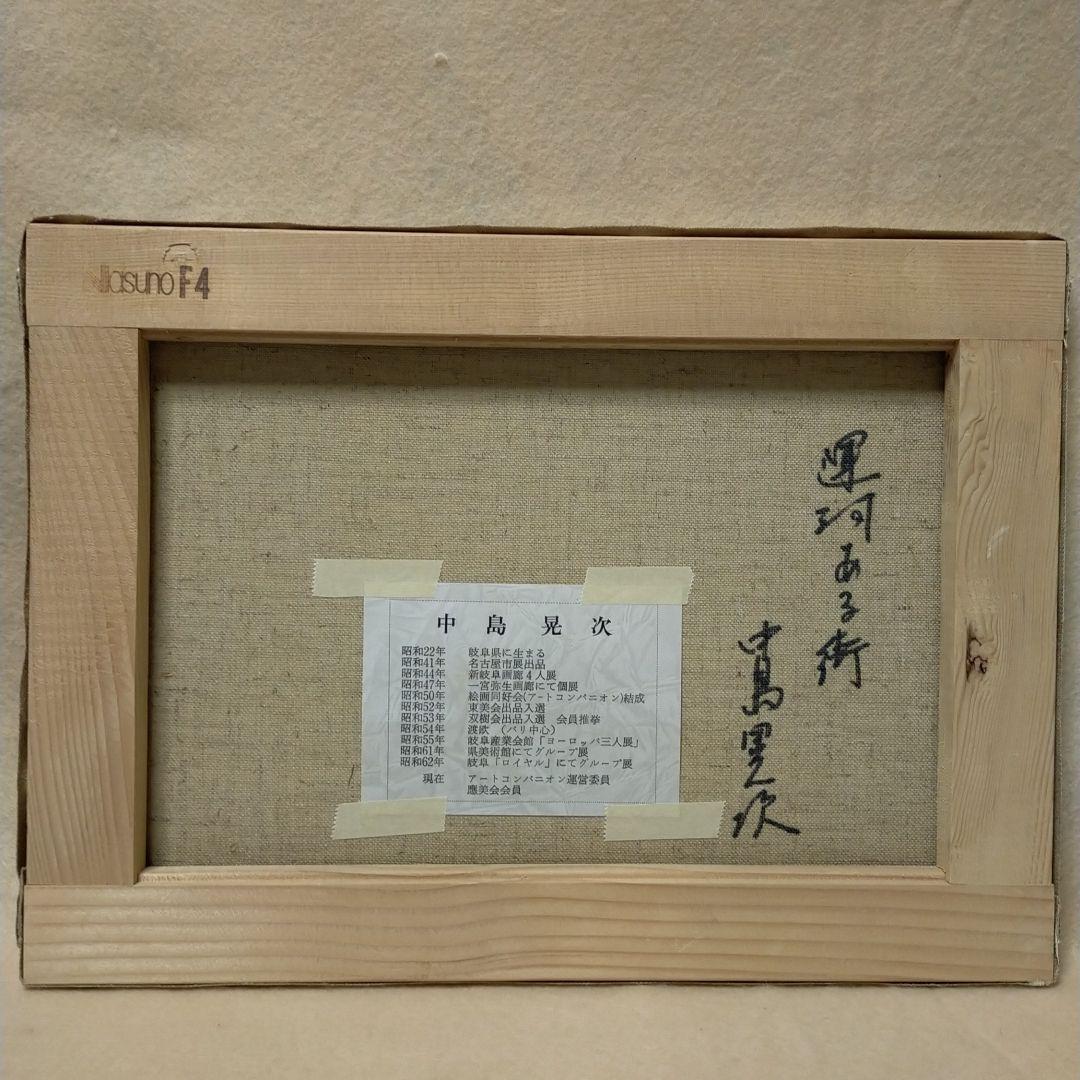 F4
運河ある街
中島晃次
中島晃次
昭和22年 岐阜県に生まる
昭和41年 名古屋市展出品
昭和44年 新岐阜画廊4人展
昭和47年 一宮弥生画廊にて個展
昭和50年 絵画同好会(アートコンパニオン)結成
昭和52年 東美会出品入選
昭和53年 双樹会出品入選 会員推挙
昭和54年 渡欧 (パリ中心)
昭和55年 岐阜産業会館「ヨーロッパ三人展」
昭和61年 県美術館にてグループ展
昭和62年 岐阜「ロイヤル」にてグループ展
現在 アートコンパニオン運営委員
應美会会員